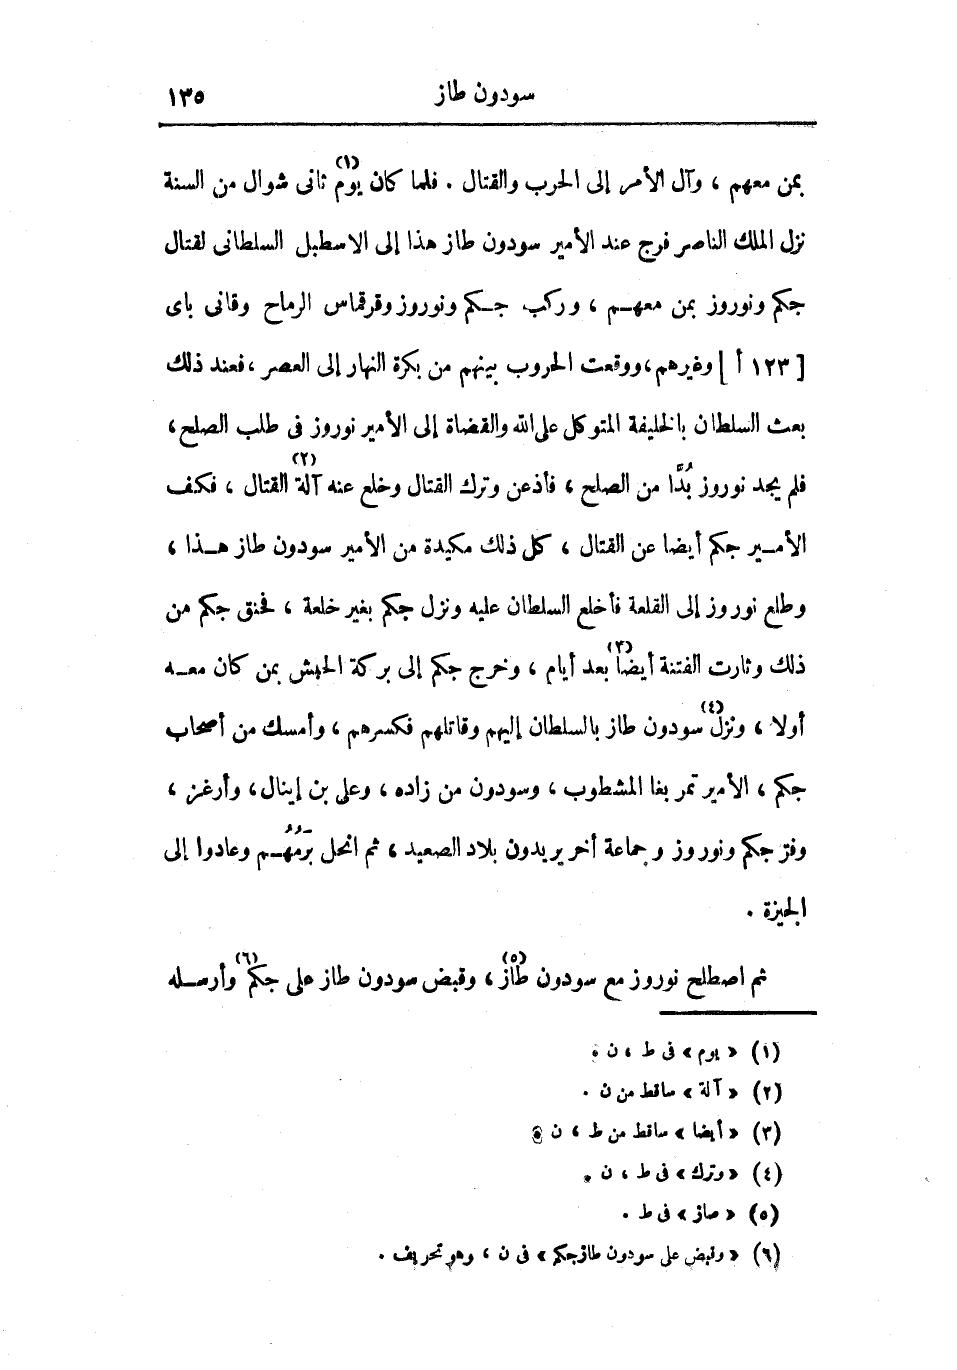 سودون طاز ١٣٥
بمن معهم ، وآل الأمر إلى الحرب والقتال . فلما كان يوم (١) ثانى شوال من السنة
نزل الملك الناصر فرج عند الأمير سودون طاز هذا إلى الاسطبل السلطانى لقتال
جكم ونوروز بمن معهم ، وركب جكم ونوروز وقرقماس الرماح وقانى باى
[ ١٢٣ أ ] وغيرهم ، ووقعت الحروب بينهم من بكرة النهار إلى العصر ، فعند ذلك
بعث السلطان بالخليفة المتوكل على الله والقضاة إلى الأمير نوروز فى طلب الصلح ،
فلم يجد نوروز بُدًّا من الصلح ، فأذعن وترك القتال وخلع عنه آلة (٢) القتال ، فكف
الأمير جكم أيضا عن القتال ، كل ذلك مكيدة من الأمير سودون طاز هذا ،
وطلع نوروز إلى القلعة فأخلع السلطان عليه ونزل جكم بغير خلعة ، فحنق جكم من
ذلك وثارت الفتنة أيضا (٣) بعد أيام ، وخرج جكم إلى بركة الحبش بمن كان معه
أولا ، ونزل (٤) سودون طاز بالسلطان إليهم وقاتلهم فكسرهم ، وأمسك من أصحاب
جكم ، الأمير تمر بغا المشطوب ، وسودون من زاده ، وعلى بن إينال ، وأرغز ،
وفرّ جكم ونوروز وجماعة أخر يريدون بلاد الصعيد ، ثم انحل بَرْمُهُم وعادوا إلى
الجيزة .
ثم اصطلح نوروز مع سودون طاز (٥) ، وقبض سودون طاز على جكم (٦) وأرسله
(١) « يوم » فى ط ، ن .
(٢) « آلة » ساقط من ن .
(٣) « أيضا » ساقط من ط ، ن .
(٤) « وترك » فى ط ، ن .
(٥) « صاز » فى ط .
(٦) « وقبض على سودون طازجكم » فى ن ، وهو تحريف .